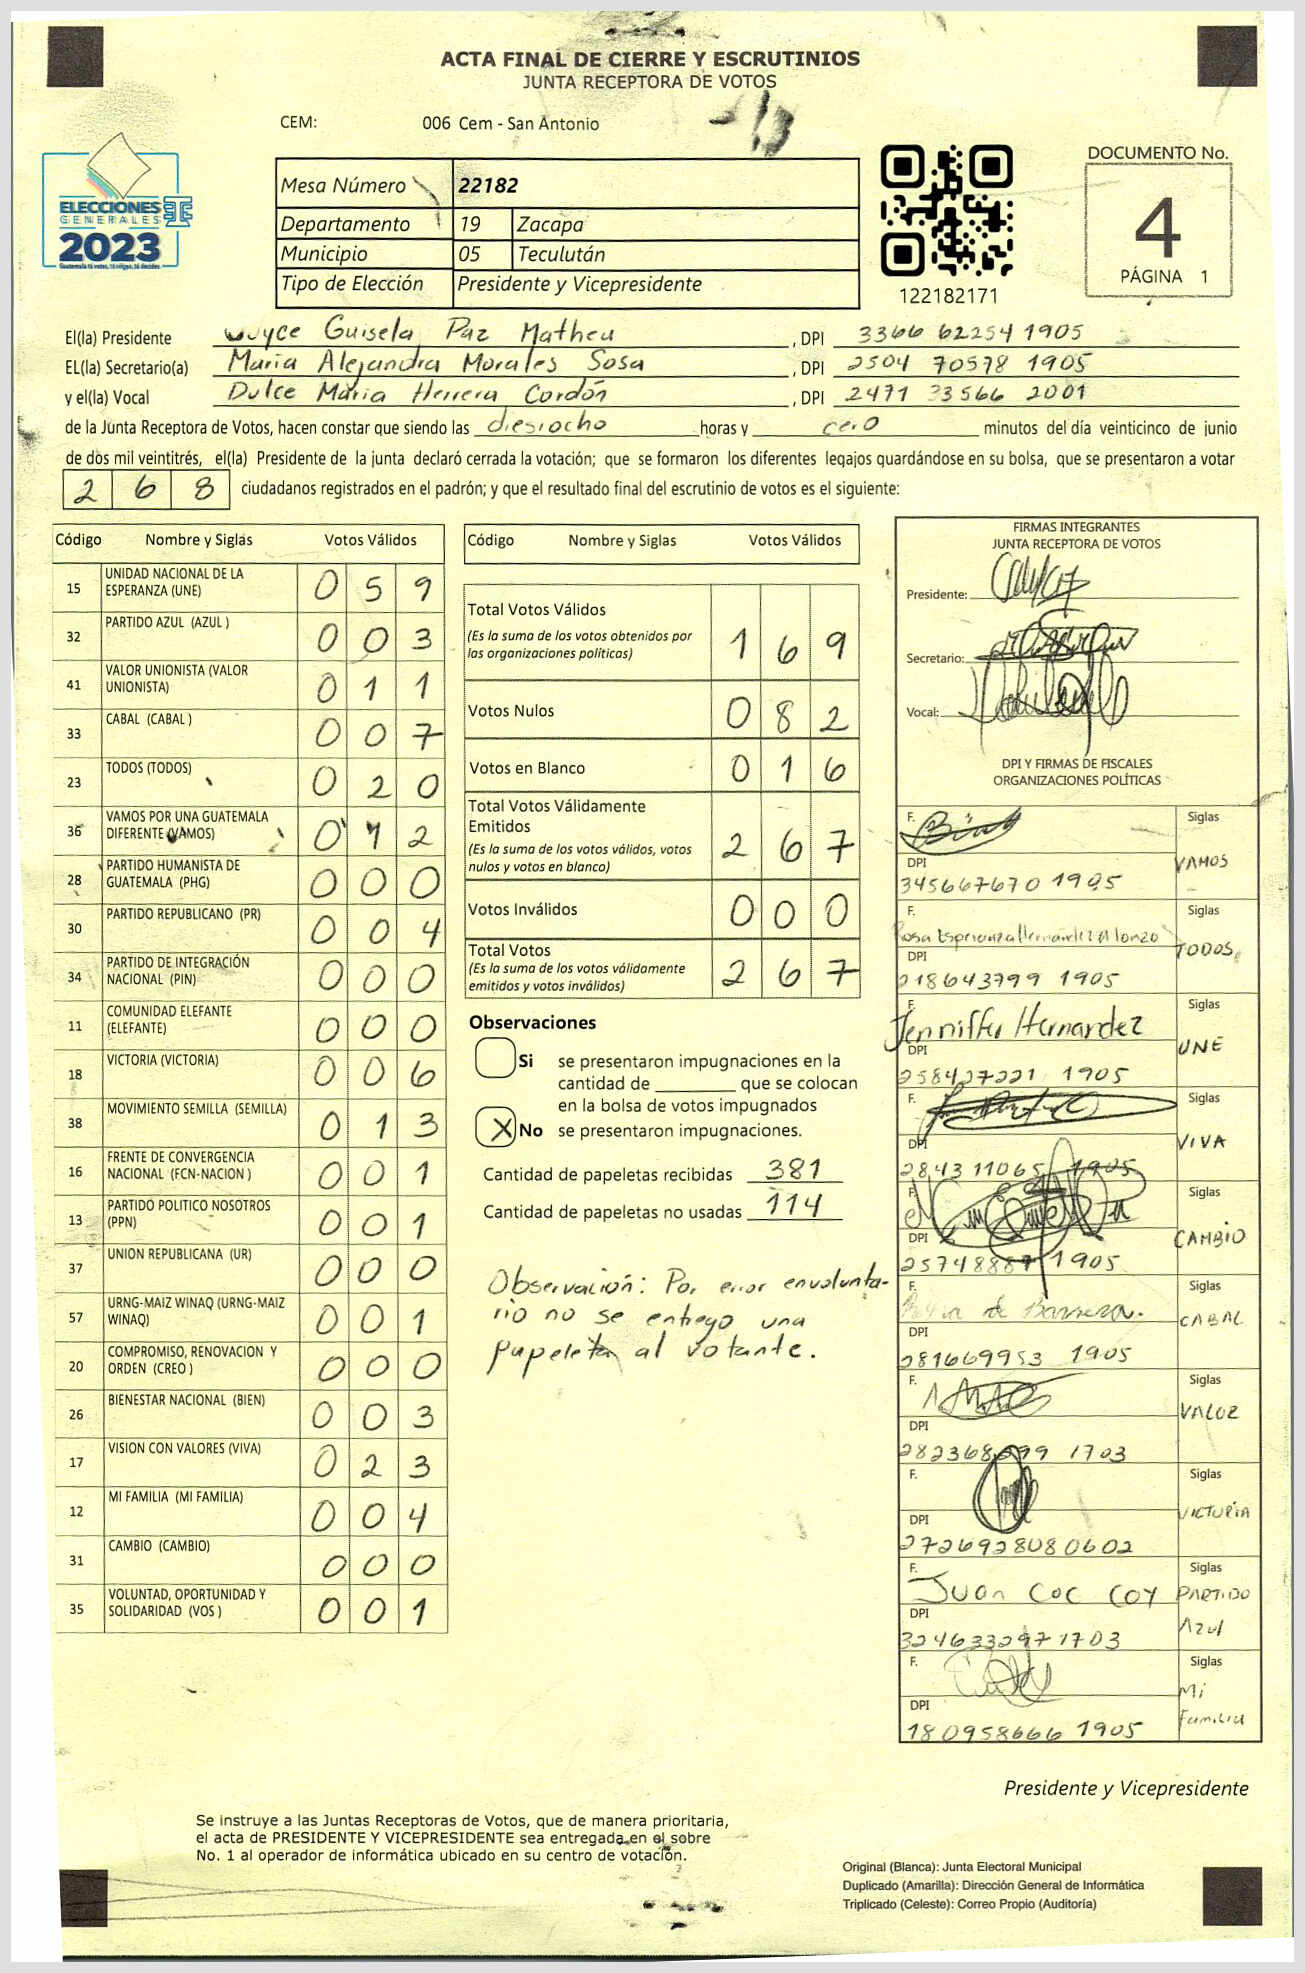 ACTA FINAL DE CIERRE Y ESCRUTINIOS
JUNTA RECEPTORA DE VOTOS
CEM: 006 Cem - San Antonio
ELECCIONES
GENERALES
2023
Guatemala tú votas, tú eliges, tú decides.
Mesa Número 22182
Departamento 19 Zacapa
Municipio 05 Teculután
Tipo de Elección Presidente y Vicepresidente
122182171
DOCUMENTO No.
4
PÁGINA 1
El(la) Presidente Joyce Guisela Paz Matheu , DPI 3366 62254 1905
EL(la) Secretario(a) Maria Alejandra Morales Sosa , DPI 2504 70578 1905
y el(la) Vocal Dulce Maria Herrera Cordón , DPI 2471 33566 2001
de la Junta Receptora de Votos, hacen constar que siendo las diesiocho horas y cero minutos del día veinticinco de junio
de dos mil veintitrés, el(la) Presidente de la junta declaró cerrada la votación; que se formaron los diferentes legajos guardándose en su bolsa, que se presentaron a votar
2 6 8 ciudadanos registrados en el padrón; y que el resultado final del escrutinio de votos es el siguiente:
Código Nombre y Siglas Votos Válidos
15 UNIDAD NACIONAL DE LA ESPERANZA (UNE) 0 5 9
32 PARTIDO AZUL (AZUL ) 0 0 3
41 VALOR UNIONISTA (VALOR UNIONISTA) 0 1 1
33 CABAL (CABAL ) 0 0 7
23 TODOS (TODOS) 0 2 0
36 VAMOS POR UNA GUATEMALA DIFERENTE (VAMOS) 0 1 2
28 PARTIDO HUMANISTA DE GUATEMALA (PHG) 0 0 0
30 PARTIDO REPUBLICANO (PR) 0 0 4
34 PARTIDO DE INTEGRACIÓN NACIONAL (PIN) 0 0 0
11 COMUNIDAD ELEFANTE (ELEFANTE) 0 0 0
18 VICTORIA (VICTORIA) 0 0 6
38 MOVIMIENTO SEMILLA (SEMILLA) 0 1 3
16 FRENTE DE CONVERGENCIA NACIONAL (FCN-NACION ) 0 0 1
13 PARTIDO POLITICO NOSOTROS (PPN) 0 0 1
37 UNION REPUBLICANA (UR) 0 0 0
57 URNG-MAIZ WINAQ (URNG-MAIZ WINAQ) 0 0 1
20 COMPROMISO, RENOVACION Y ORDEN (CREO ) 0 0 0
26 BIENESTAR NACIONAL (BIEN) 0 0 3
17 VISION CON VALORES (VIVA) 0 2 3
12 MI FAMILIA (MI FAMILIA) 0 0 4
31 CAMBIO (CAMBIO) 0 0 0
35 VOLUNTAD, OPORTUNIDAD Y SOLIDARIDAD (VOS ) 0 0 1
Código Nombre y Siglas Votos Válidos
Total Votos Válidos
(Es la suma de los votos obtenidos por
las organizaciones políticas) 1 6 9
Votos Nulos 0 8 2
Votos en Blanco 0 1 6
Total Votos Válidamente
Emitidos
(Es la suma de los votos válidos, votos
nulos y votos en blanco) 2 6 7
Votos Inválidos 0 0 0
Total Votos
(Es la suma de los votos válidamente
emitidos y votos inválidos) 2 6 7
Observaciones
Si se presentaron impugnaciones en la
cantidad de ________ que se colocan
en la bolsa de votos impugnados
X No se presentaron impugnaciones.
Cantidad de papeletas recibidas 381
Cantidad de papeletas no usadas 114
Observación: Por error envolunta-
rio no se entrego una
papeleta al votante.
FIRMAS INTEGRANTES
JUNTA RECEPTORA DE VOTOS
Presidente:
Secretario:
Vocal:
DPI Y FIRMAS DE FISCALES
ORGANIZACIONES POLÍTICAS
F. Siglas
VAMOS
DPI
345667670 1905
F. Siglas
Rosa Esperanza Hernandez Alonzo
TODOS
DPI
218643799 1905
F. Siglas
Jenniffer Hernandez
UNE
DPI
258427221 1905
F. Siglas
VIVA
DPI
284311065 1905
F. Siglas
CAMBIO
DPI
25748887 1905
F. Siglas
de Barrera.
CABAL
DPI
281669953 1905
F. Siglas
VALOR
DPI
1703
F. Siglas
VICTORIA
DPI
2726928080602
F. Siglas
Juan Coc Coy PARTIDO
Azul
DPI
3246332971703
F. Siglas
Mi
Familia
DPI
180958666 1905
Presidente y Vicepresidente
Se instruye a las Juntas Receptoras de Votos, que de manera prioritaria,
el acta de PRESIDENTE Y VICEPRESIDENTE sea entregada en el sobre
No. 1 al operador de informática ubicado en su centro de votación.
Original (Blanca): Junta Electoral Municipal
Duplicado (Amarilla): Dirección General de Informática
Triplicado (Celeste): Correo Propio (Auditoría)